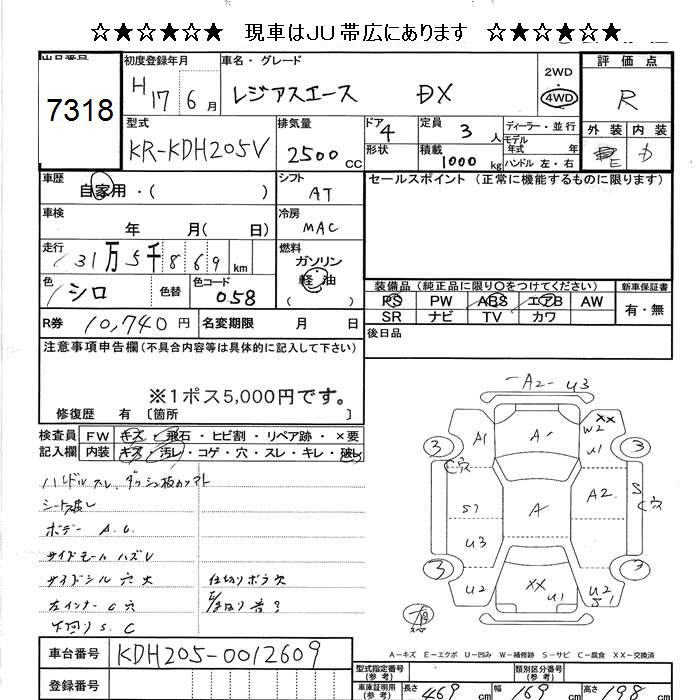 ☆★☆★☆★☆ 現車はJU帯広にあります ☆★☆★☆★☆
出品番号 7318
初度登録年月 H17 6月
車名・グレード レジアスエース DX
2WD 4WD
評価点 R
外装 E 内装 D
型式 KR-KDH205V
排気量 2500 CC
ドア 4 形状
定員 3 人
積載 1000 kg
ディーラー・並行
モデル年式 年
ハンドル 左・右
車歴 自家用・( )
シフト AT
セールスポイント (正常に機能するものに限ります)
車検 年 月( 日)
冷房 MAC
走行 31万5千869 km
燃料 ガソリン 軽油 ( )
色 シロ 色替 色コード 058
装備品(純正品に限り○をつけてください) 新車保証書
PS PW ABS エアB AW 有・無
SR ナビ TV カワ
R券 10,740円 名変期限 月 日
後日品
注意事項申告欄(不具合内容等は具体的に記入して下さい)
※1ポス5,000円です。
修復歴 有 〔箇所 〕
検査員記入欄 FW キズ・飛石・ヒビ割・リペア跡・×要
内装 キズ・汚レ・コゲ・穴・スレ・キレ・破レ
ハンドルスレ、ダッシュ板カット
シート破レ
ボデー A.U.
サイドモールハズレ
サイドシル穴大 仕切りボラ欠
左インナーC穴
下回りS.C
A2 U3
A1 A XX W2 U1
3 C穴 3
S1 A A2 S C穴
U3
3 3
U2 XX U1 U2 S1
A-キズ E-エクボ U-凹み W-補修跡 S-サビ C-腐食 XX-交換済
車台番号 KDH205-0012609
登録番号
型式指定番号(参考) 類別区分番号(参考)
車庫証明用(参考) 長さ 469 cm 幅 169 cm 高さ 198 cm